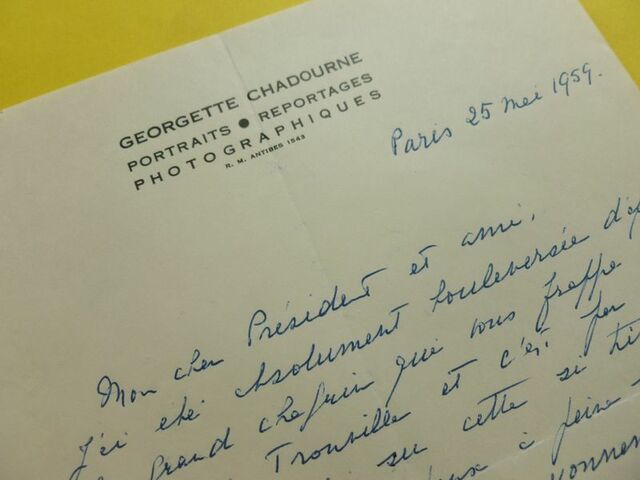 GEORGETTE CHADOURNE
PORTRAITS • REPORTAGES
PHOTOGRAPHIQUES
R. M. ANTIBES 1543
Paris 25 mai 1959.
Mon cher Président et ami,
J'ai été absolument bouleversée
grand chagrin que vous frappe
Trouville et c'est par
su cette si
à peine